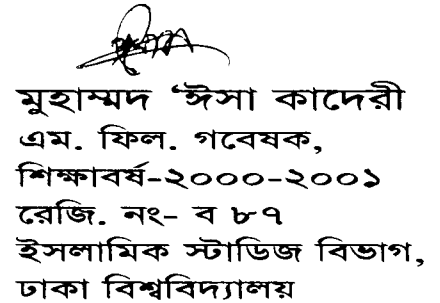 মুহাম্মদ ‘ঈসা কাদেরী
এম. ফিল. গবেষক,
শিক্ষাবর্ষ-২০০০-২০০১
রেজি. নং- ব ৮৭
ইসলামিক স্টাডিজ বিভাগ,
ঢাকা বিশ্ববিদ্যালয়